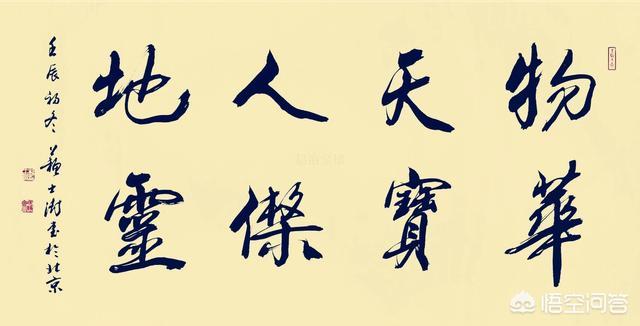 物華
天寶
人傑
地靈
壬辰初冬 蘇士澍書於北京
悟空问答